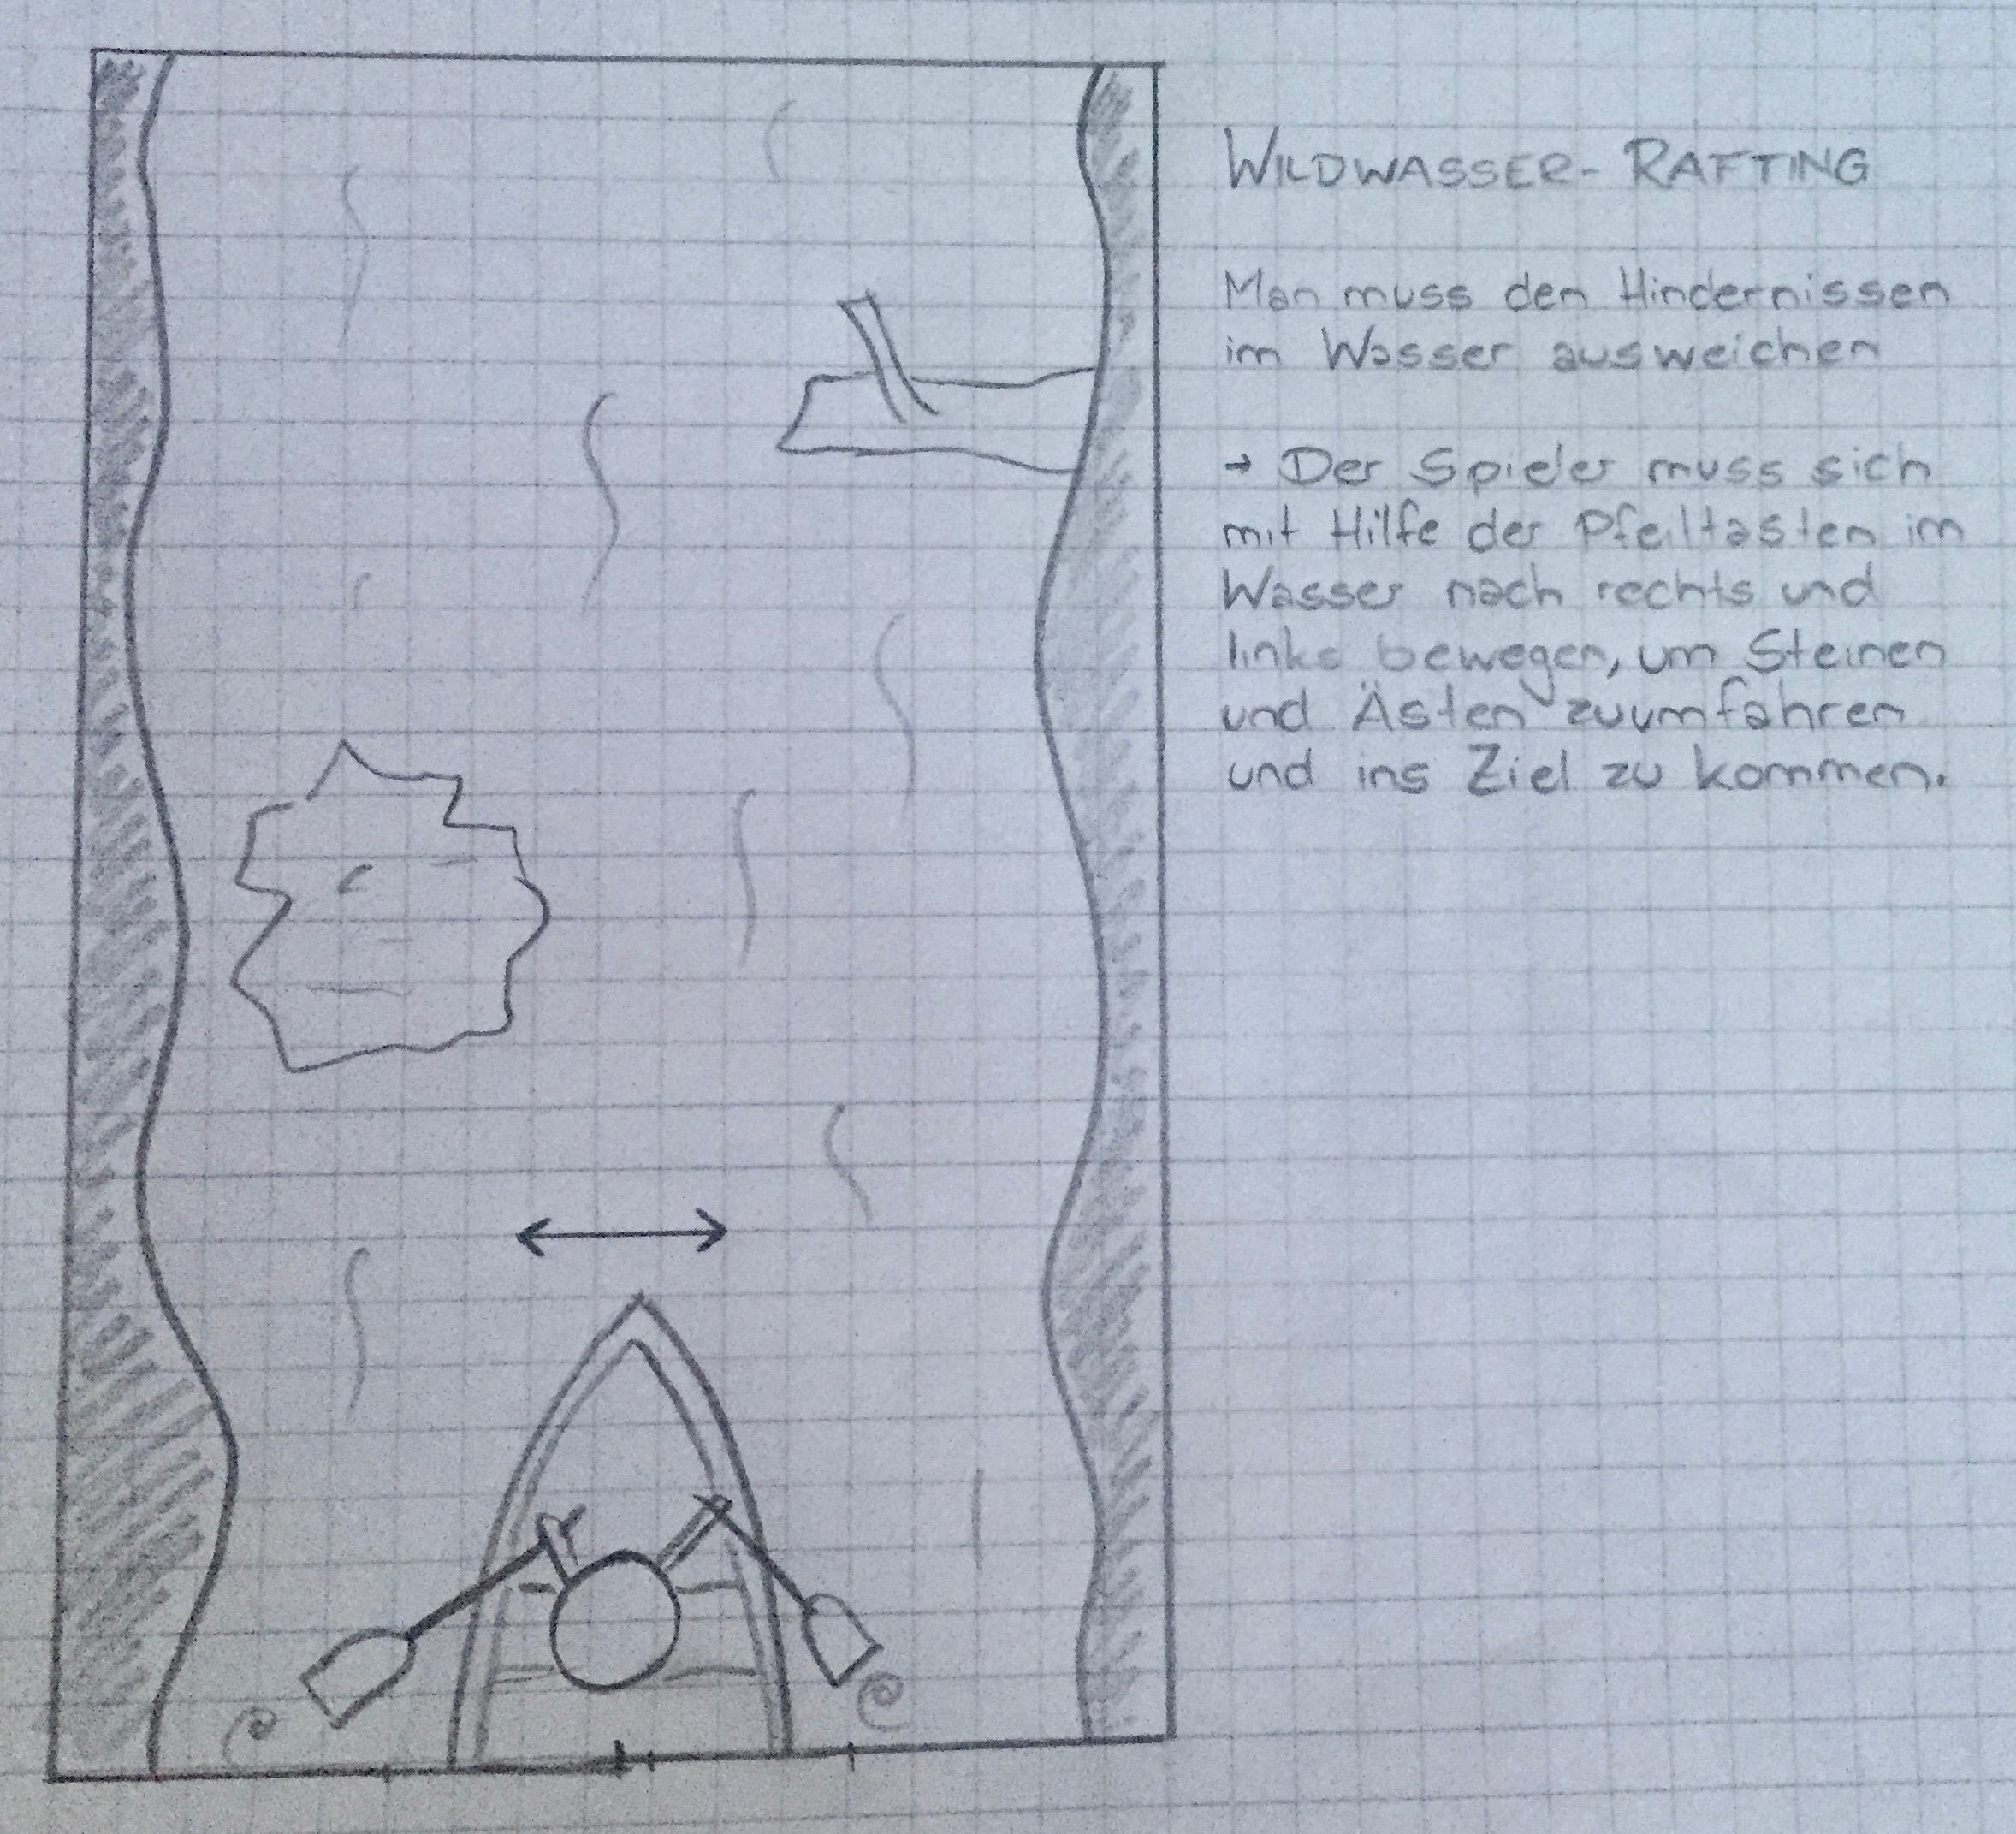 WILDWASSER-RAFTING
Man muss den Hindernissen
im Wasser ausweichen
→ Der Spieler muss sich
mit Hilfe der Pfeiltasten im
Wasser nach rechts und
links bewegen, um Steinen
und Ästen zuumfahren
und ins Ziel zu kommen.